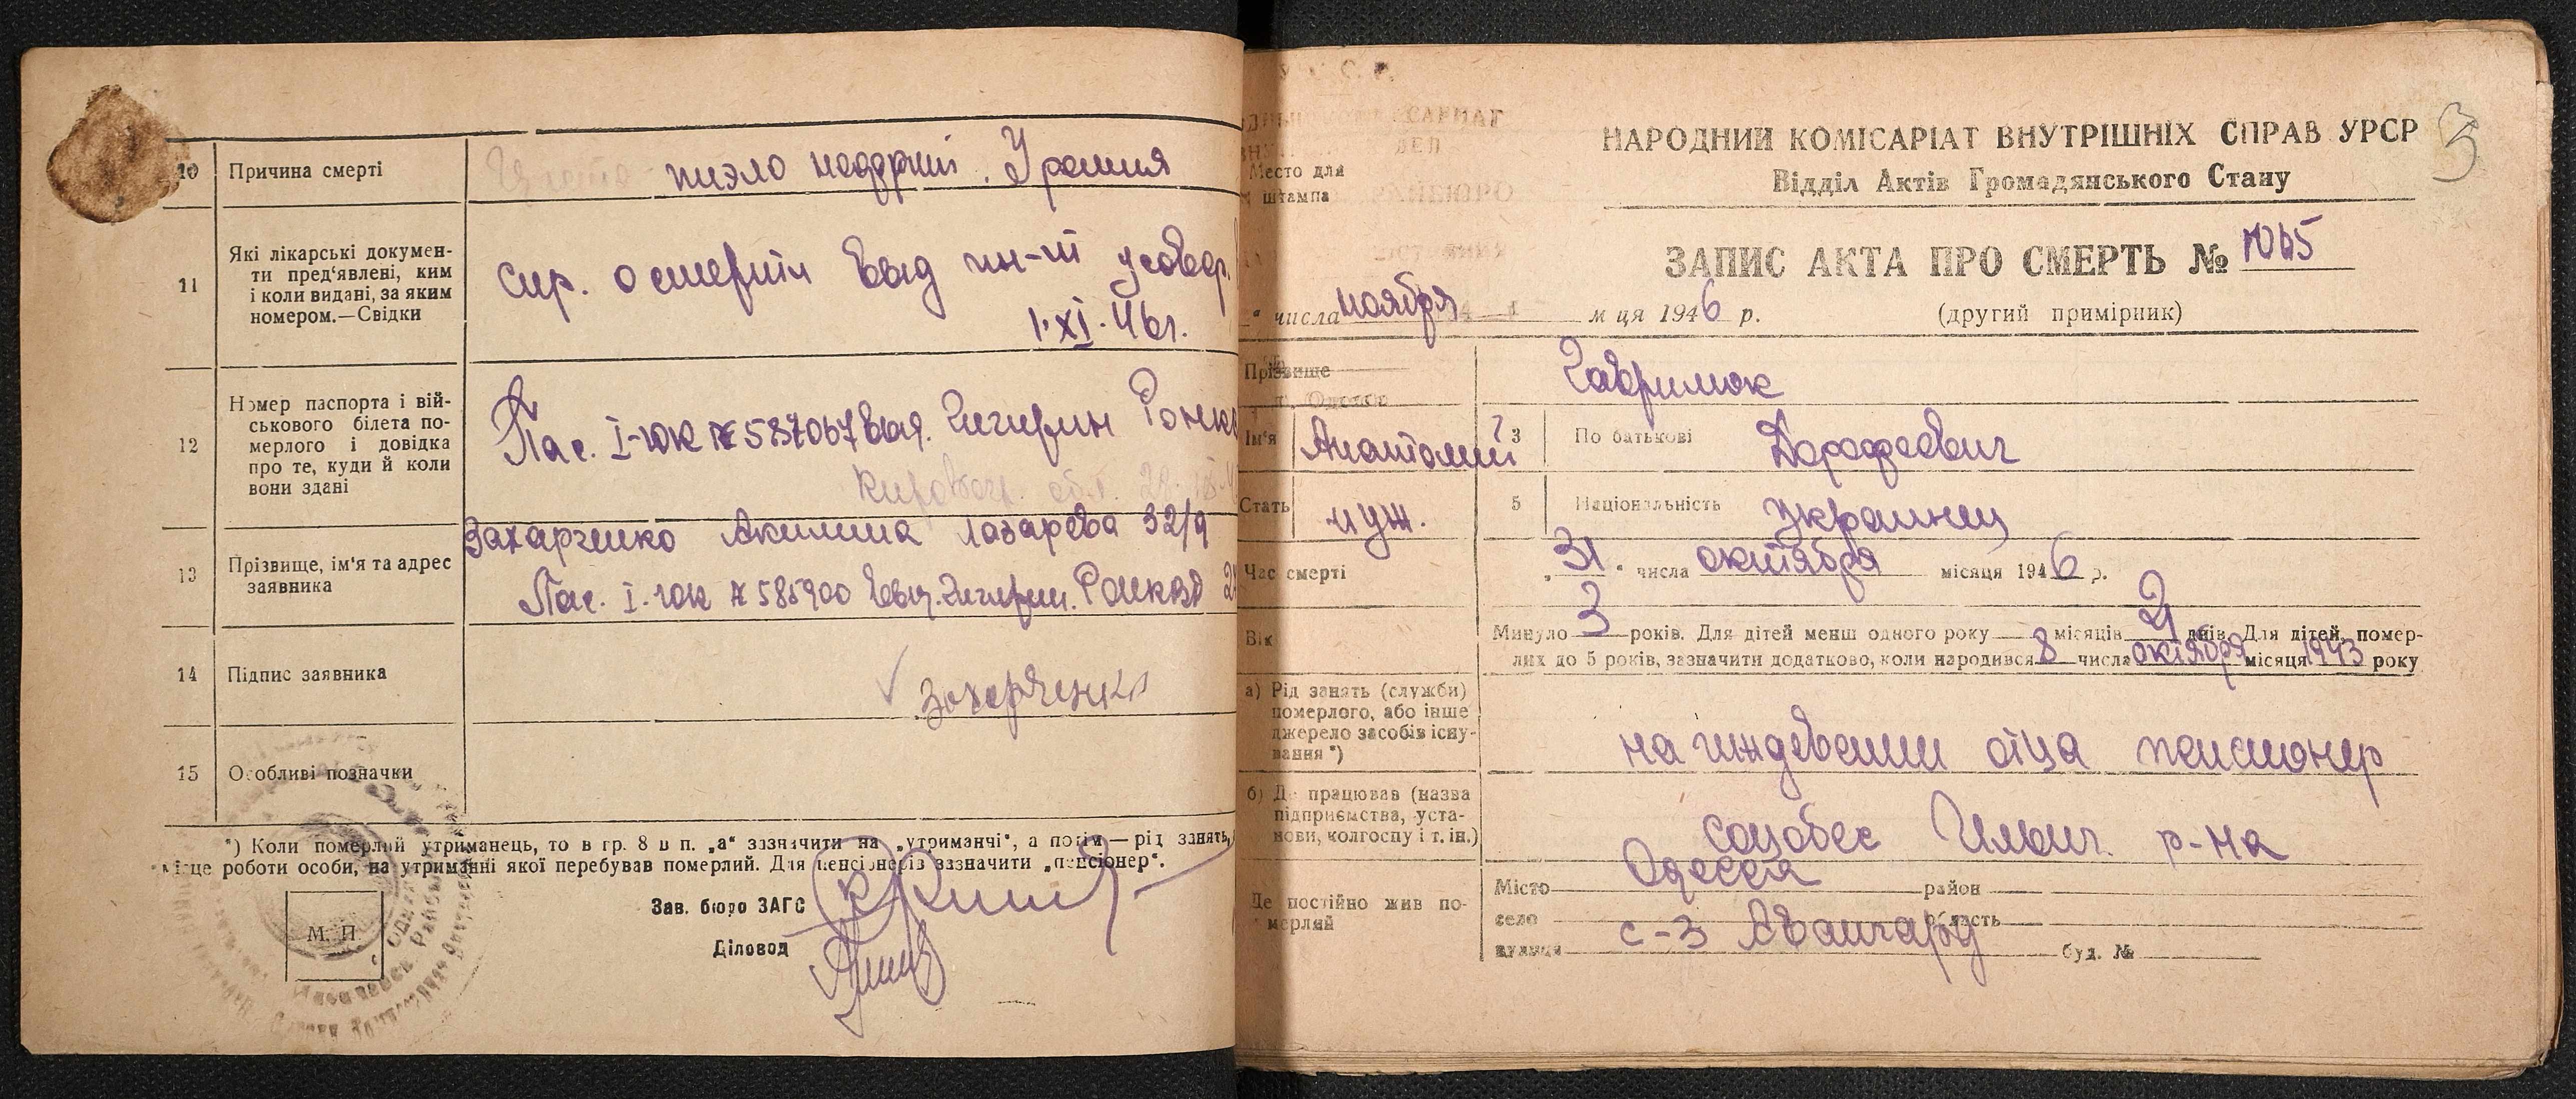 10 Причина смерті пиэло нефрит. Уремия
11 Які лікарські докумен-
ти пред'явлені, ким
і коли видані, за яким
номером.—Свідки
спр. о смерти выд ин-т усовер.
1.XI.46г.
12 Номер паспорта і вій-
ськового білета по-
мерлого і довідка
про те, куди й коли
вони здані
Пас. I-ЮК № 587067 выд.
Кировогр. обл.
13 Прізвище, ім'я та адрес
заявника
Захарченко Акилина Лазарева 32/9
Пас. I-ЮК № 585900 выд.
14 Підпис заявника Захарченко
15 Особливі позначки
*) Коли померлий утриманець, то в гр. 8 в п. „а“ зазначити на „утриманчі“, а потім — рід занять,
місце роботи особи, на утриманні якої перебував померлий. Для пенсіонерів зазначити „пенсіонер“.
Зав. бюро ЗАГС
Діловод
М. П.
3
НАРОДНИЙ КОМІСАРІАТ ВНУТРІШНІХ СПРАВ УРСР
Відділ Актів Громадянського Стану
Место для
штампа
ЗАПИС АКТА ПРО СМЕРТЬ № 1065
“ числа ноября м ця 1946 р. (другий примірник)
Прізвище Гаврилюк
Ім'я Анатолий 3 По батькові Дорофеевич
Стать муж. 5 Національність украинец
Час смерті „31“ числа октября місяця 1946 р.
Вік Минуло 3 року. Для дітей менш одного року місяців 21 днів. Для дітей, помер-
лих до 5 років, зазначити додатково, коли народився 8 числа октября місяця 1943 року
а) Рід занять (служби)
померлого, або інше
джерело засобів існу-
вання *)
на иждевении отца пенсионер
б) Де працював (назва
підприємства, уста-
нови, колгоспу і т. ін.)
собес Ильич. р-на
Де постійно жив по-
мерлий
Місто Одесса район
село область
вулиця с-з Авангард буд. №